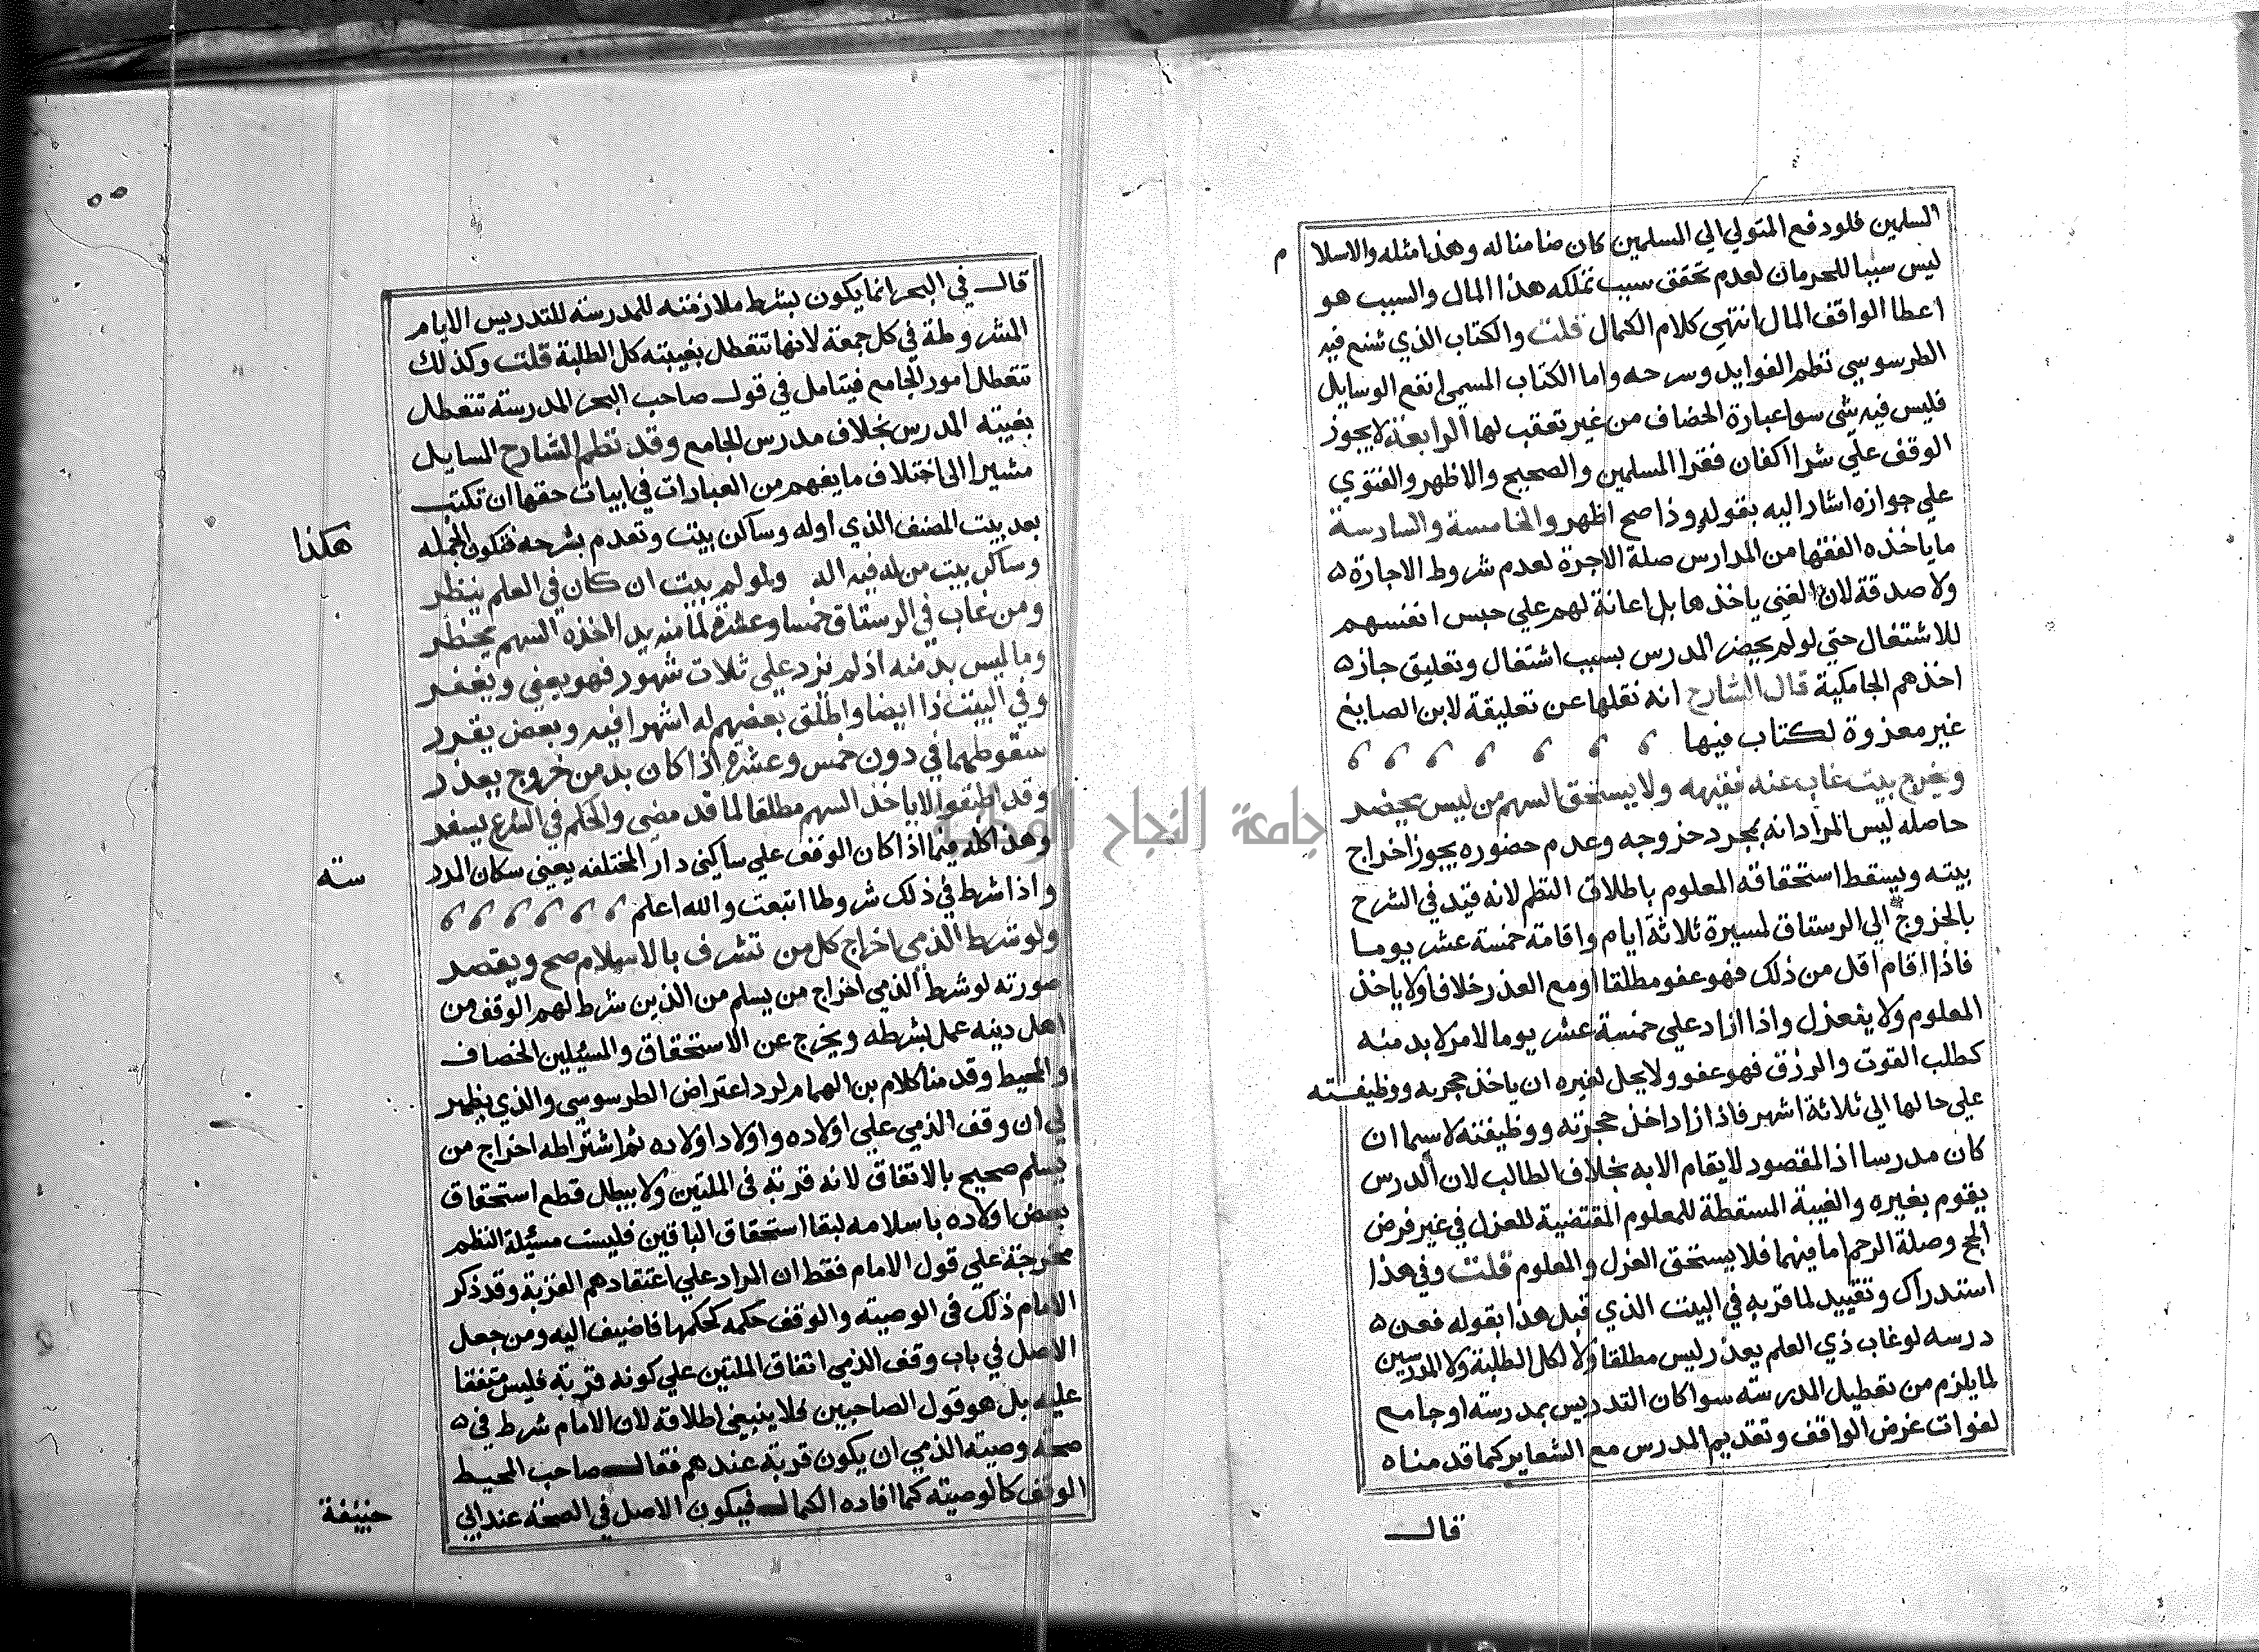 السلمين فلو دفع المتولي الي المسلمين كان ضامنا له وهذا مثله والاسلا م
ليس سببا للحرمان لعدم تحقق سبب تملكه هذا المال والسبب هو
اعطا الواقف المال انتهي كلام الكمال قلت والكتاب الذي شنع فيه
الطرسوسي نظم الفوايد وسرحه واما الكتاب المسمي انفع الوسايل
فليس فيه شي سوا عبارة الخضاف من غير تعقب لها الرابعة لا يجوز
الوقف علي شرا اكفان فقرا المسلمين والصحيح والاظهر والفتوي
علي جوازه اشار اليه بقوله وذا صح اظهر والخامسة والسادسة
ما ياخذه الفقها من المدارس صلة لا اجرة لعدم شروط الاجارة ٥
ولا صدقة لان الغني ياخذها بل اعانة لهم علي حبس انفسهم
للاشتغال حتي لو لم يحضر المدرس بسبب اشتغال وتعليق جاز ٥
اخذهم الجامكية قال الشارح انه نقلها عن تعليقة لابن الصايغ
غير معزوة لكتاب فيها
ويخرج بيت غاب عنه فقيهه ولا يستحق السهم من ليس يحضر
حاصله ليس المراد انه بمجرد خروجه وعدم حضوره يجوز اخراج
بيته ويسقط استحقاقه المعلوم باطلاق النظم لانه قيد في الشرح
بالخروج الي الرستاق لمسيرة ثلاثة ايام واقامة خمسة عشر يوما
فاذا اقام اقل من ذلك فهو عفو مطلقا او مع العذر خلافا ولا ياخذ
المعلوم ولا ينعزل واذا ازاد علي خمسة عشر يوما لامر لا بد منه
كطلب القوت والرزق فهو عفو ولا يحل لغيره ان ياخذ حجره ووظيفته
علي حالها الي ثلاثة اشهر فاذا زاد اخذ حجرته ووظيفته لا سيما ان
كان مدرسا اذ المقصود لا يقام الا به بخلاف الطالب لان الدرس
يقوم بغيره والغيبة المسقطة للمعلوم المقتضية للعزل في غير فرض
الحج وصلة الرحم اما فيهما فلا يستحق العزل والمعلوم قلت وفي هذا
استدراك وتقييد لما قربه في البيت الذي قبل هذا بقوله فعن ٥
درسه لو غاب ذي العلم يعذر ليس مطلقا ولا لكل الطلبة ولا المدرسين
لما يلزم من تعطيل المدرسته سوا كان التدريس بمدرسته او جامع
لفوات غرض الواقف وتقديم المدرس مع الشعاير كما قدمناه
قال
قال في البحر انما يكون بشرط ملازمته للمدرسة للتدريس الايام
المشروطة في كل جمعة لانها تتعطل بغيبته كل الطلبة قلت وكذلك
تتعطل امور الجامع فيتامل في قول صاحب البحر المدرسته تتعطل
بغيبته المدرس بخلاف مدرس الجامع وقد نظم الشارح السايل
مشيرا الي اختلاف ما يفهم من العبارات في ابيات حقها ان تكتب
بعد بيت المصنف الذي اوله وساكن بيت وتقدم بشرحه فتكون الجمله هكذا
وساكن بيت من له فيه ولو لم يبت ان كان في العلم ينظر
ومن غاب في الرستاق خمسا وعشرة لما منه بد اخذه السهم يحظر
وما ليس بد منه اذ لم يزد علي ثلاث شهور فهو يعفي ويغفر
وفي البيت ذا ايضا واطلق بعضهم له اشهرا فيه وبعض يقرر
سقوطهما في دون خمس وعشرة اذا كان بد من خروج يعذر
وقد اطبقوا لا ياخذ السهم مطلقا لما قد مضي والحكم في الشرع يسفر
وهذا كله فيما اذا كان الوقف علي ساكني دار المختلفه يعني سكان المدر سة
واذا شرط في ذلك شروطا اتبعت والله اعلم
ولو شرط الذمي اخراج كل من تشرف بالاسلام صح ويقصد
صورته لو شرط الذمي اخراج من يسلم من الذين شرط لهم الوقف من
اهل دينه عمل بشرطه ويخرج عن الاستحقاق والمسئيلين الخصاف
والمحيط وقدمنا كلام بن الهمام لرد اعتراض الطرسوسي والذي يظهر
لي ان وقف الذمي علي اولاده واولاد اولاده ثم اشتراطه اخراج من
يسلم صحيح بالاتفاق لانه قربة في الملتين ولا يبطل قطع استحقاق
بعض اولاده باسلامه لبقا استحقاق الباقين فليست مسئيلة النظم
مخرجة علي قول الامام فقط ان المراد علي اعتقادهم القربة وقد ذكر
الامام ذلك في الوصيته والوقف حكمه كحكمها فاضيف اليه ومن جعل
الاصل في باب وقف الذمي اتفاق الملتين علي كونه قربة فليس متفقا
عليه بل هو قول الصاحبين فلا ينبغي اطلاقه لان الامام شرط في ٥
صحة وصيته الذمي ان يكون قربة عندهم فقال صاحب المحيط
الوقف كالوصيته كما افاده الكمال فيكون الاصل في الصحة عند ابي
حنيفة
جامعة النجاح الوطنية